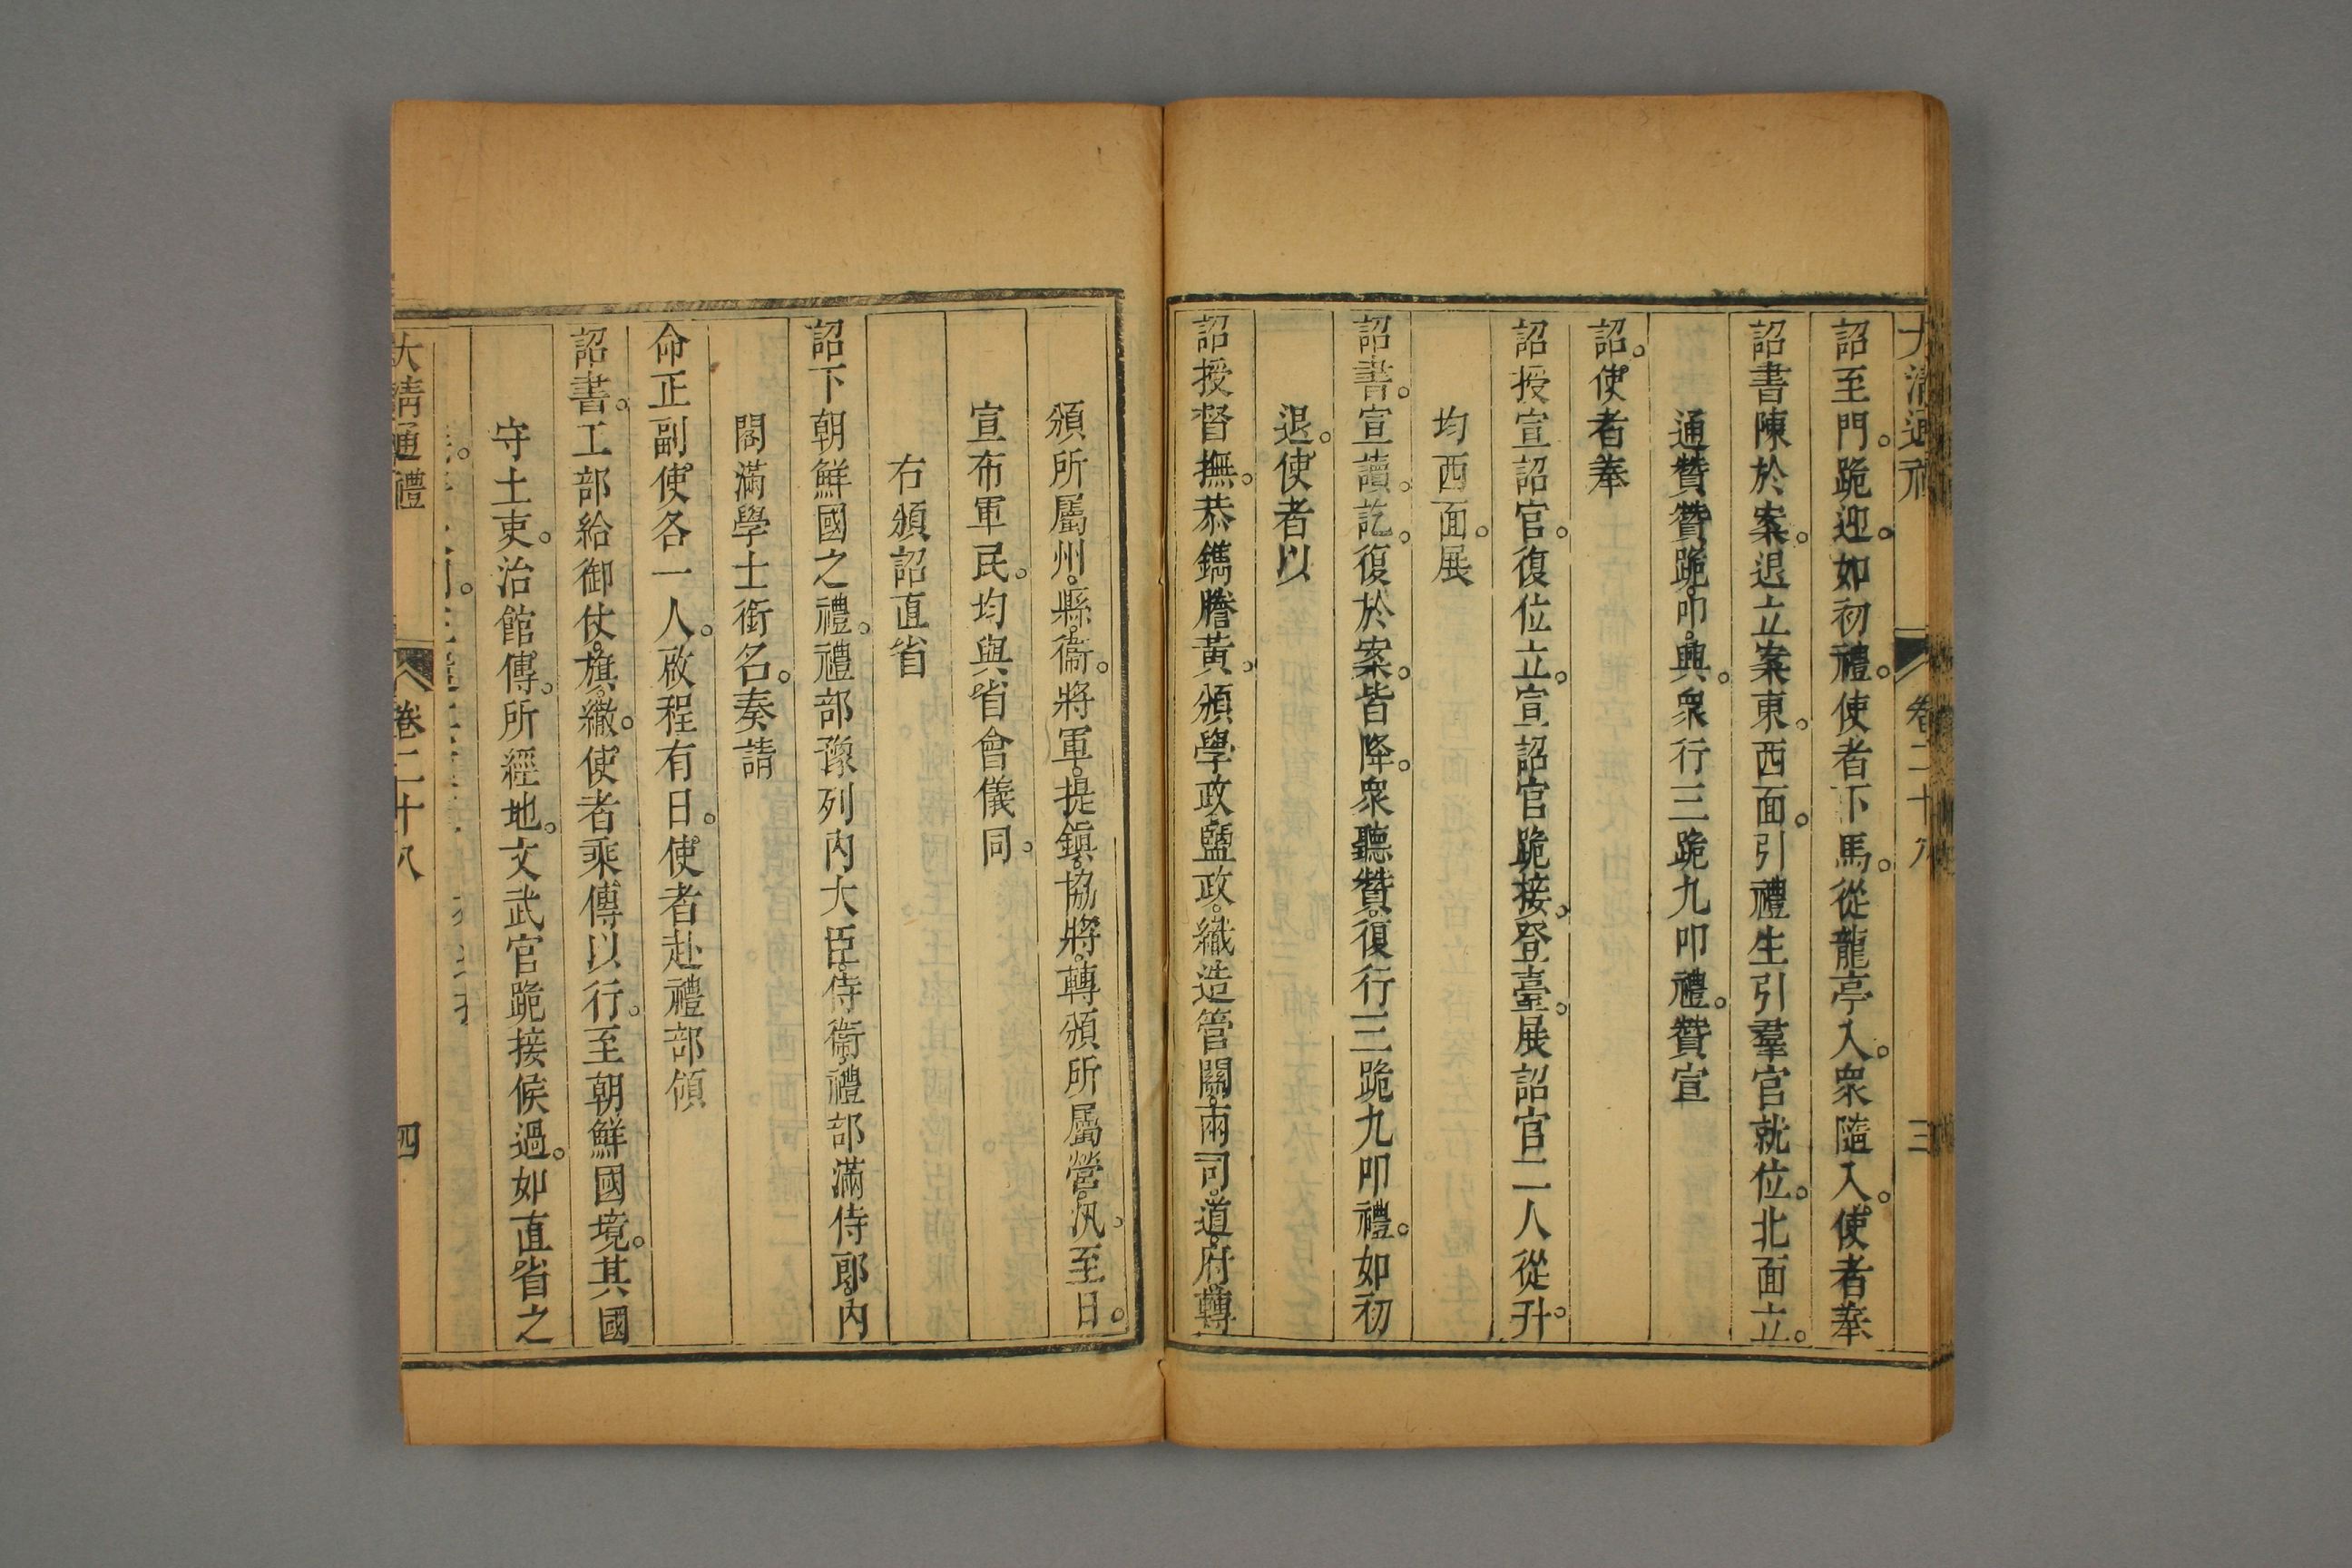 大清通禮 卷二十八 三
詔至門。跪迎如初禮。使者下馬。從龍亭入。衆隨入。使者奉
詔書陳於案。退立案東。西面。引禮生引羣官就位。北面立。
通贊贊跪。叩。興。衆行三跪九叩禮。贊宣
詔。使者奉
詔授宣詔官。復位立。宣詔官跪接。登臺。展詔官二人從升。
均西面。展
詔書。宣讀。訖。復於案。皆降。衆聽贊。復行三跪九叩禮。如初
退。使者以
詔授督撫。恭鐫謄黃。頒學政。鹽政。織造管關。兩司。道。府。轉
頒所屬州。縣。衞。將軍。提。鎭。協將。轉頒所屬營。汛。至日。
宣布軍民。均與省會儀同。
右頒詔直省
詔下朝鮮國之禮。禮部豫列內大臣。侍衞。禮部滿侍郎。內
閣滿學士銜名。奏請
命正副使各一人。啟程有日。使者赴禮部領
詔書。工部給御仗。旗。繖。使者乘傳以行。至朝鮮國境。其國
守土吏。治館傳。所經地。文武官跪接候過。如直省之
大清通禮 卷二十八 四